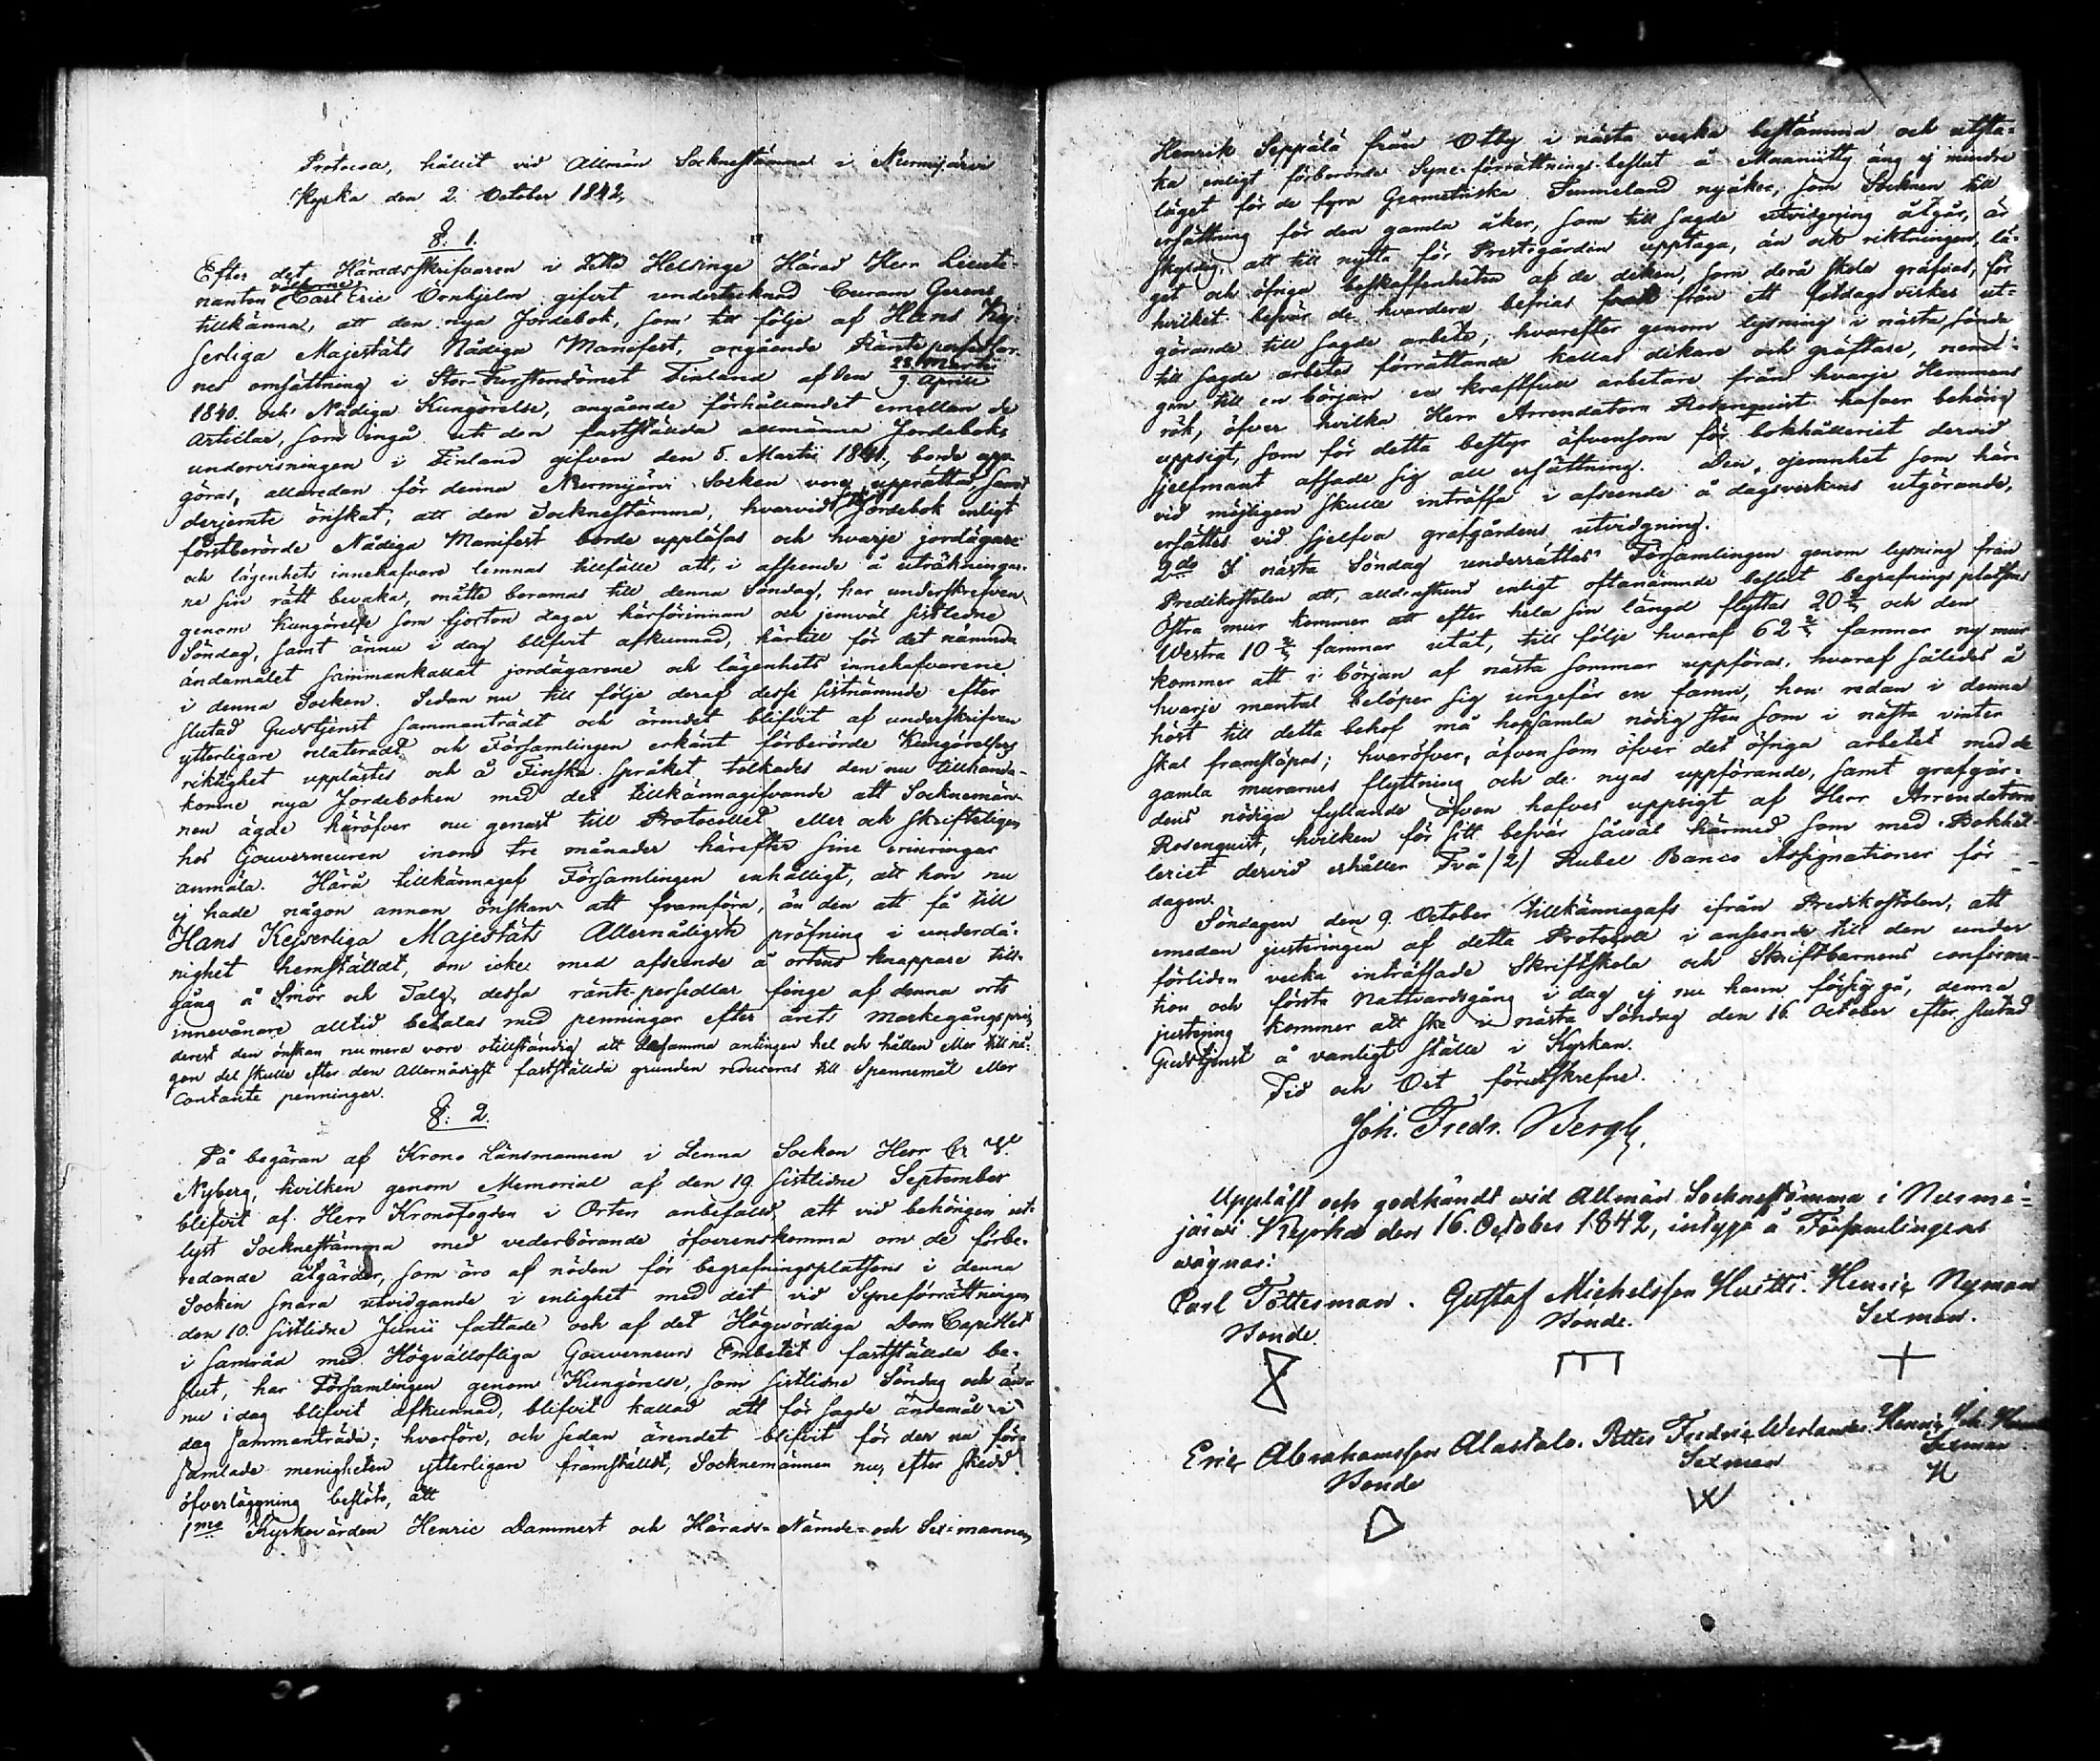 Protocoll, hållit vid Allmän Socknestämma i Nurmijärvi
Kyrka den 2. October 1842.
§. 1.
Efter det Häradsskrifvaren i detta Helsinge Härad Herr Lieute-
nanten välborne Carl Eric Örnhjelm gifvit undertecknad Curam Gerens
tillkänna, att den nya Jordebok, som till följe af Hans Kej-
serliga Majestäts Nådiga Manifest, angående Räntepersedlar-
nes omsättning i Stor-Furstendömet Finland af den 28 Martii / 9 Aprill
1840. och Nådiga Kungörelse, angående förhållandet emellan de
artiklar, som ingå uti den fastställda allmänna Jordeboks
undervisningen i Finland gifven den 5. Martii 1841, borde upp-
göras, allaredan för denna Nurmijärvi Socken vore upprättad samt
derjemte önskat, att den Socknestämma, hvarvid Jordebok enligt
förstberörde Nådiga Manifest borde uppläsas och hvarje jordägare
och lägenhets innehafvare lemnas tillfälle att, i afseende å uträkningar-
ne sin rätt bevaka, måtte beramas till denna Söndag, har underskrefven
genom Kungörelse som fjorton dagar härförinnan och jemväl sistledne
Söndag, samt ännu i dag blifvit afkunnad, härtill för det nämnda
ändamålet sammankallat jordägarene och lägenhets innehafvarene
i denna Socken. Sedan nu till följe deraf desse sistnämnde efter
slutad Gudstjenst sammanträdt och ärendet blifvit af underskrifven
ytterligare relateradt och Församlingen erkänt förberörde Kungörelses
riktighet upplästes och å Finska språket tolkades den nu tillhanda-
komne nya Jordeboken med det tillkännagifvande att Sockenmän-
nen ägde häröfver nu genast till Protocollet eller ock skrifteligen
hos Gouverneuren inom tre månader härefter sine erinringar
anmäla. Härå tillkännagaf Församlingen enhälligt, att hon nu
ej hade någon annan önskan att framföra, än den att få till
Hans Kejserliga Majestäts Allernådigste pröfning i underdå-
nighet hemställdt, om icke med afseende å ortens knappare till-
gång å Smör och Talg, dessa ränte-persedlar finge af denna orts
innevånare alltid betalas med penningar efter årets markegångspris,
derest den önskan numera vore otillständig att desamma antingen hel och hållen eller till nå-
gon del skulle efter den Allernådigst fastställda grunden reduceras till Spannemål eller
Contante penningar.
§. 2.
På begäran af Krono Länsmannen i denna Socken Herr
Nyberg, hvilken genom Memorial af den 19. sistlidne September
blifvit af Herr KronoFogden i Orten anbefalld, att vid behörigen ut-
lyst Sockenstämma med vederbörande öfverenskomma om de förbe-
redande åtgärder, som äro af nöden för begrafningsplatsens i denna
Socken snara utvidgande i enlighet med det vid Syneförrättningen
den 10. sistlidne Junii fattade och af det Högwördiga Dom Capitlet
i samråd med Högvällofliga Gouverneurs Embetet fastställda be-
slut, har Församlingen genom Kungörelse, som sistlidne Söndag och än-
nu i dag blifvit afkunnad, blifvit kallad att för sagde ändamål i
dag sammanträda; hvarföre, och sedan ärendet blifvit för den nu för-
samlade menigheten ytterligare framställdt, Socknemännen nu, efter skedd
öfverläggning beslöto, att
1mo Kyrkovärden Henric Dammert och Härads-Nämde- och Sex-mannen
Henrik Seppälä från Otby i nästa vecka bestämma och utsta-
ka enligt förberörde Syne-förrättnings-beslut å Maaniitty äng ej mindre
läget för de fyra Geometriska Tunneland nyåker, som Socknen till
ersättning för den gamla åker, som till sagde utvidgning åtgår, är
skyldig att till nytta för Prestegården upptaga, än ock riktningen, lä-
get och öfriga beskaffenheten af de diken, som derå skola gräfvas, för
hvilket besvär de hvardera befrias från ett fotdagsverkes ut-
görande till sagde arbete; hvarefter genom lysning i nästa Söndag
till sagde arbetes förrättande kallas dikare och gräftare, nemli-
gen till en början en kraftfull arbetare från hvarje Hemmans
rök, öfver hvilka Herr Arrendatorn Rosenquist hafver behörig
uppsigt, som för detta bestyr äfvensom för bokhålleriet dervid
sjelfmant afsade sig all ersättning. Den ojemnhet som här-
vid möjligen skulle inträffa i afseende å dagsverkens utgörande,
ersättes vid sjelfva grafgårdens utvidgning.
2do I nästa Söndag underrättas Församlingen genom lysning från
Predikostolen att, alldenstund enligt oftanämnde beslut begrafningsplatsens
Östra mur kommer att efter hela sin längd flyttas 20 och den
Westra 10 famnar utåt, till följe hvaraf 62 famnar ny mur
kommer att i början af nästa sommar uppföras, hvaraf således å
hvarje mantal belöper sig ungefär en famn, hon redan i denna
höst till detta behof må hopsamla nödig sten som i nästa vinter
skal framsläpas; hvaröfver, äfven som öfver det öfriga arbetet med de
gamla murarnes flyttning och de nyas uppförande, samt grafgår-
dens nödiga fyllande äfven hafves uppsigt af Herr Arrendatorn
Rosenquist, hvilken för sitt besvär såwäl härmed som med Bokhål-
leriet dervid erhåller Två /2/ Rubel Banco Assignationer för
dagen.
Söndagen den 9. October tillkännagafs ifrån Predikostolen, att
emedan justeringen af detta Protocoll i anseende till den under
förlidne vecka inträffade Skriftskola och Skriftbarnens confirma-
tion och första Nattvardsgång i dag ej nu hann försiggå, denna
justering kommer att ske i nästa Söndag den 16 October efter slutad
Gudstjenst å vanligt ställe i Kyrkan.
Tid och Ort förutskrefne.
Joh. Fredr. Bergh.
Uppläst och godkändt wid Allmän Sockenstämma i Nurmi-
järvi Kyrka den 16. October 1842, intyga å Församlingens
wägnar:
Carl Töttesman. Gustaf Michelsson Hertti. Henric Nyman
Bonde. Bonde. Sexman.
Eric Abrahamsson Alastalo. Petter Fredric Werlander. Henric Joh.
Bonde Sexman Sexman